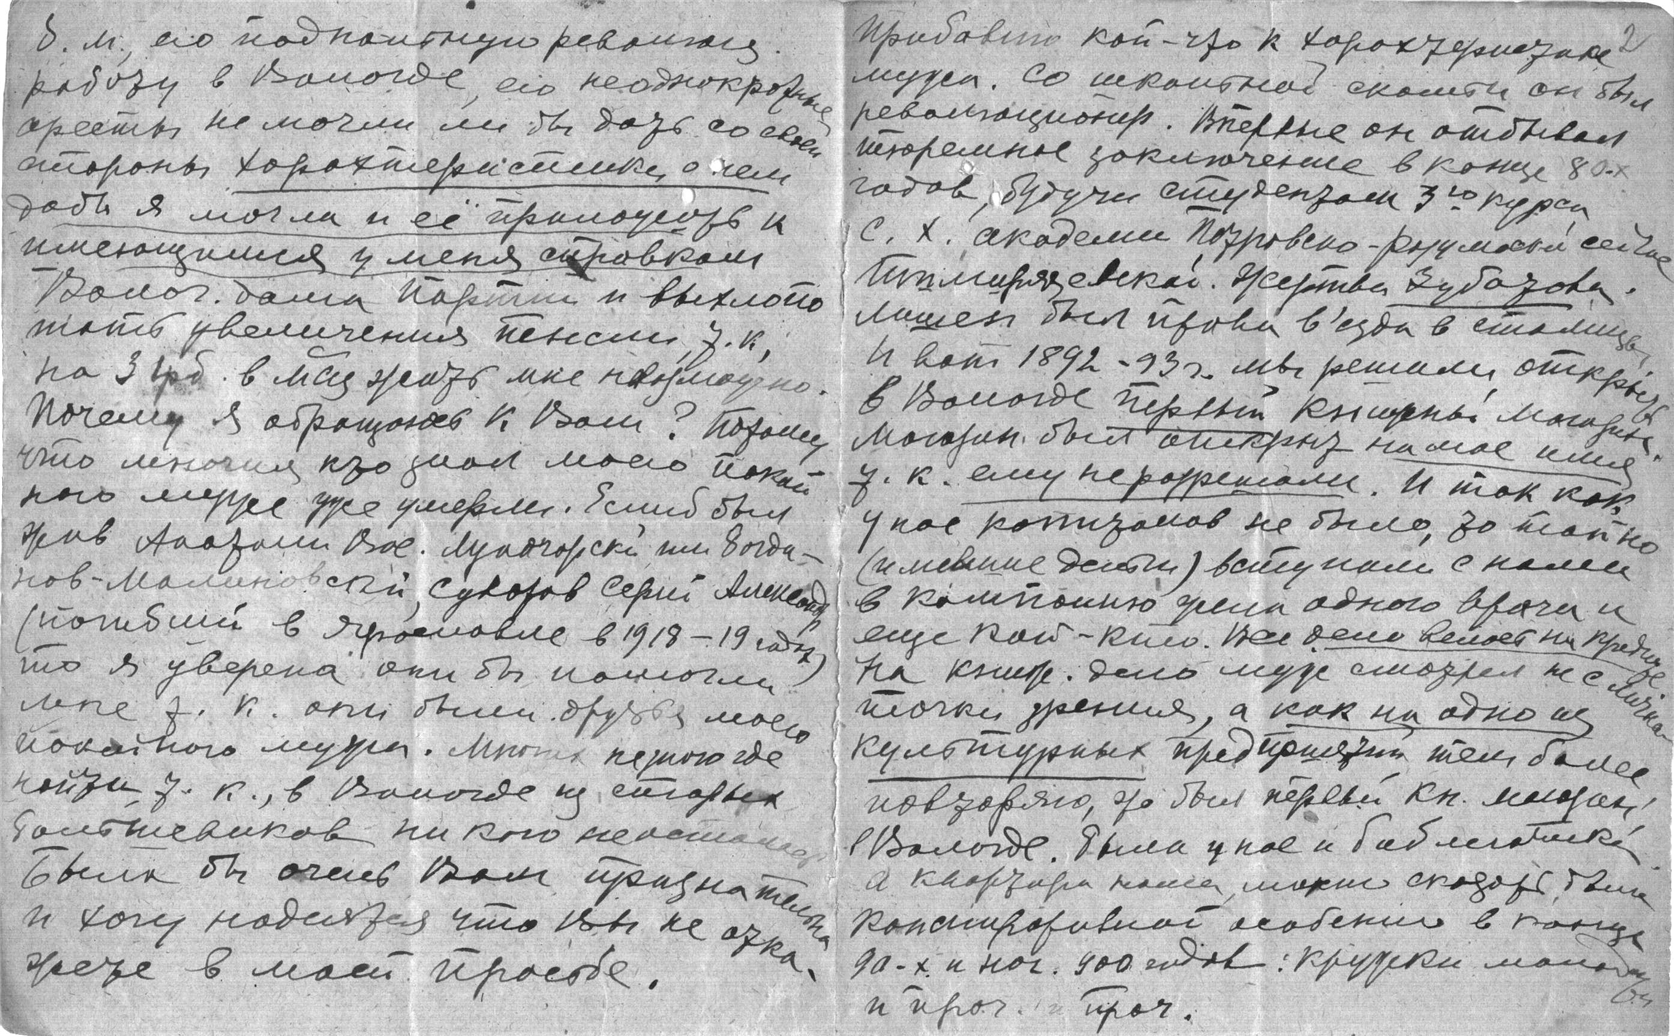 б. м., его подпольную революц.
работу в Вологде, его неоднократные
аресты не могли ли бы дать со своей
стороны характеристику о нем
дабы я могла и её приложить к
имеющимся у меня справкам
Волог. дома Партии и выхлопо
тать увеличения пенсии, т. к,
на 3 рб. в м-ц жить мне невозможно.
Почему я обращаюсь к Вам? Потому
что многие кто знал моего покой
ного мужа уже умерли. Еслиб был
жив Анатолий Вас. Луначарский или Богда-
нов-Малиновский, Суворов Сергей Александр
(погибший в Ярославле в 1918-19 годах)
то я уверена они бы помогли
мне т. к. они были друзья моего
покойного мужа. Мне их негде
найти т. к., в Вологде из старых
большевиков никого не осталось
Была бы очень Вам признательна
и хочу надеяться что Вы не отка-
жете в моей просьбе.
2
Прибавлю кой-что к характеристике
мужа. Со школьной скамьи он был
революционер. Впервые он отбывал
тюремное заключение в конце 80-х
годов, будучи студентом 3го курса
с. х. академии Петровско-разумовской сейчас
Тимирязевской. Жертва Зубатова.
Лишен был права в'езда в столицы.
И вот 1892-93 г. мы решили открыть
в Вологде первый книжный магазин.
Магазин был открыт на мое имя
т. к. ему не разрешали. И так как
у нас капиталов не было, то тайно
(имевшие деньги) вступали с нами
в компанию жена одного врача и
еще кой-кто. Все дело велось на кредите.
На книж. дело муж смотрел не с личной
точки зрения, а как на одно из
культурных предприятий тем более
повторяю, это был первый кн. магазин
в Вологде. Была у нас и библиотека.
А квартира наша, можно сказать, была
конспиративной особенно в конце
90-х и нач. 900 годов: кружки молодежи
и проч. и проч.